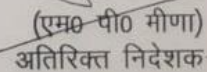 (एम0 पी0 मीणा)
अतिरिक्त निदेशक